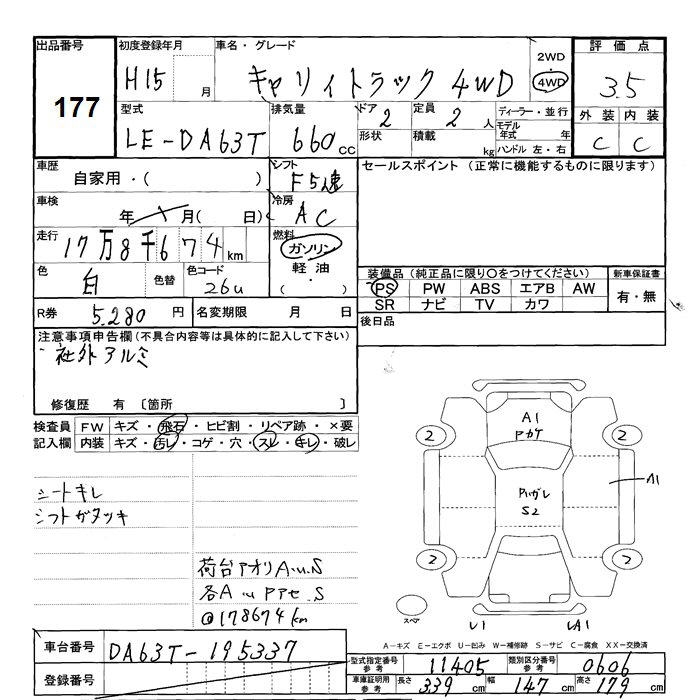 出品番号 177
初度登録年月 H15 月
車名・グレード キャリィトラック 4WD
2WD
4WD
評価点 3.5
外装 内装
C C
型式 LE-DA63T
排気量 660 cc
ドア 2
形状
定員 2 人
積載 kg
ディーラー・並行
モデル年式 年
ハンドル 左・右
車歴
自家用・( )
シフト F5速
車検
年 月( 日)
冷房 AC
走行 17万8千674km
燃料
ガソリン
軽油
・( )
色 白 色替 色コード 26U
R券 5,280 円
名変期限 月 日
セールスポイント (正常に機能するものに限ります)
装備品 (純正品に限り○をつけてください)
新車保証書
PS PW ABS エアB AW
SR ナビ TV カワ
有・無
後日品
注意事項申告欄 (不具合内容等は具体的に記入して下さい)
社外アルミ
修復歴 有 〔箇所 〕
検査員記入欄
FW キズ・飛石・ヒビ割・リペア跡・×要
内装 キズ・汚レ・コゲ・穴・スレ・キレ・破レ
シートキレ
シフトガタツキ
荷台アオリA.U.S
各A U Pアセ.S
@178674km
A1
Pカケ
2 2
Pハガレ
S2
A1
2 2
スペア
U1 UA1
A-キズ E-エクボ U-凹み W-補修跡 S-サビ C-腐食 XX-交換済
車台番号 DA63T-195337
登録番号
型式指定番号 参考 11405
類別区分番号 参考 0606
車庫証明用 参考 長さ 339 cm 幅 147 cm 高さ 179 cm